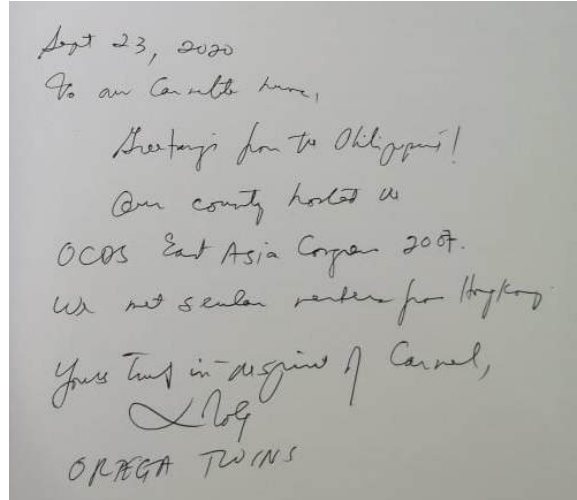 Sept 23, 2020
To our Carmelite
Greetings from the Philippines!
Our country hosted
OCDS East Asia Congress 2007.
We met secular members from Hongkong
Yours in spirit of Carmel,
ORTEGA TWINS